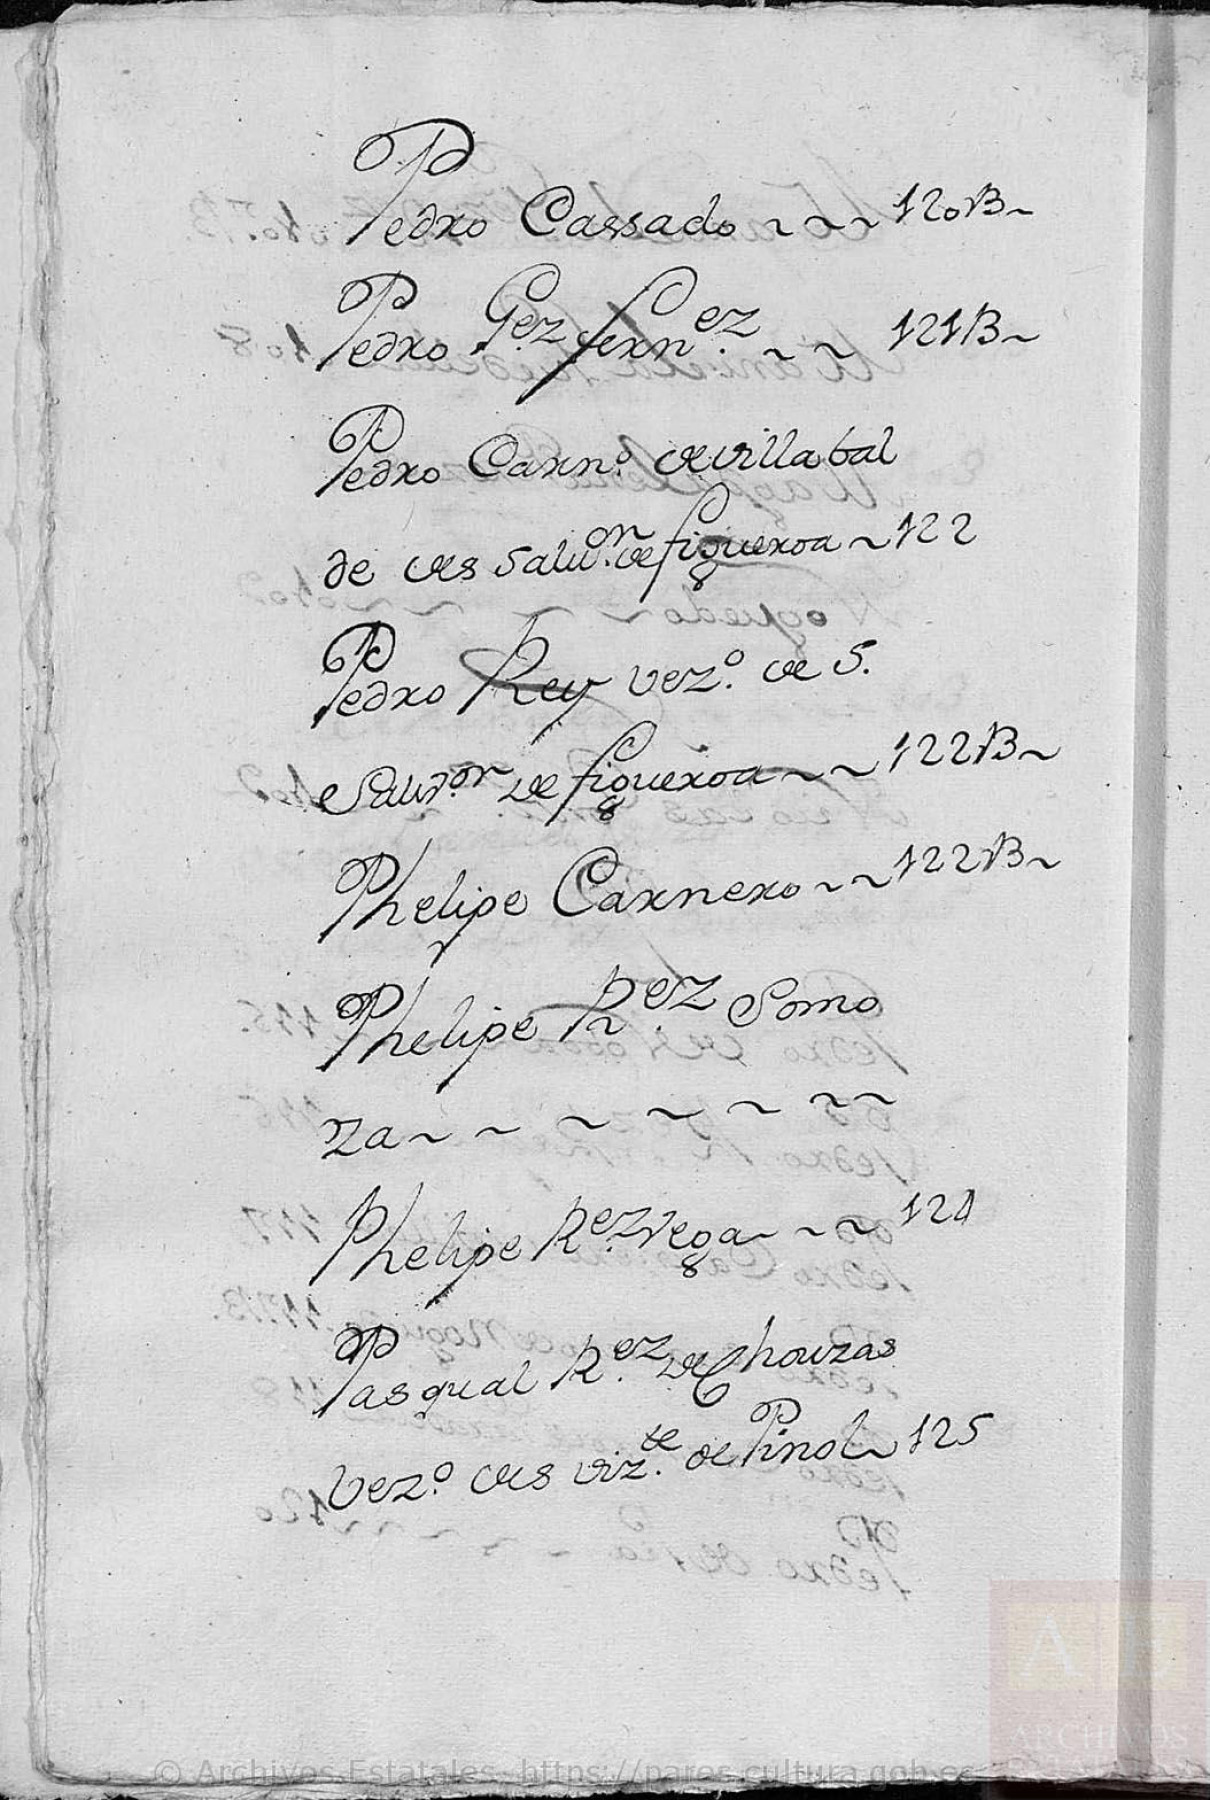 Pedro Cassado ~ ~ ~ 120B~
Pedro Gez. fernez. ~ ~ 121B~
Pedro Carno. de villabal
de des Saluon. de figueroa ~ 122
Pedro Rey vezo. de S.
Salvor. de figueroa ~ ~ 122B~
Phelipe Carnero ~ ~ 122B~
Phelipe Rez. Somo
za ~ ~ ~ ~ ~ ~ ~
Phelipe Rez. Vega ~ ~ ~ 124
Pasqual Rez. de Chouzas
vezo. des vizte. de Pinol ~ 125
AE
ARCHIVOS
© Archivos Estatales, https://pares.cultura.gob.es